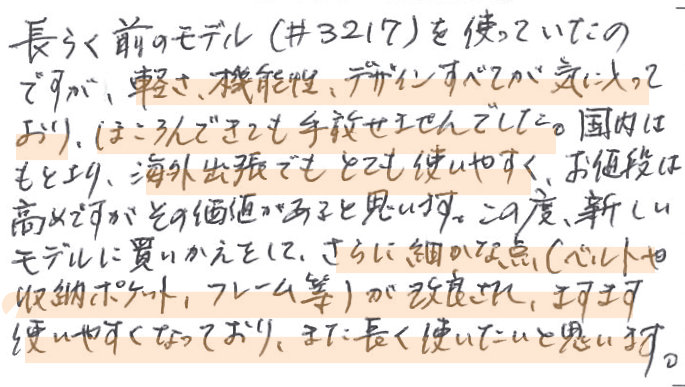 長らく前のモデル(#3217)を使っていたの
ですが、軽さ、機能性、デザインすべてが気に入って
おり、ほころんできても手放せませんでした。国内は
もとより、海外出張でもとても使いやすく、お値段は
高めですがその価値があると思います。この度、新しい
モデルに買いかえをして、さらに細かな点(ベルトや
収納ポケット、フレーム等)が改良され、ますます
使いやすくなっており、また長く使いたいと思います。